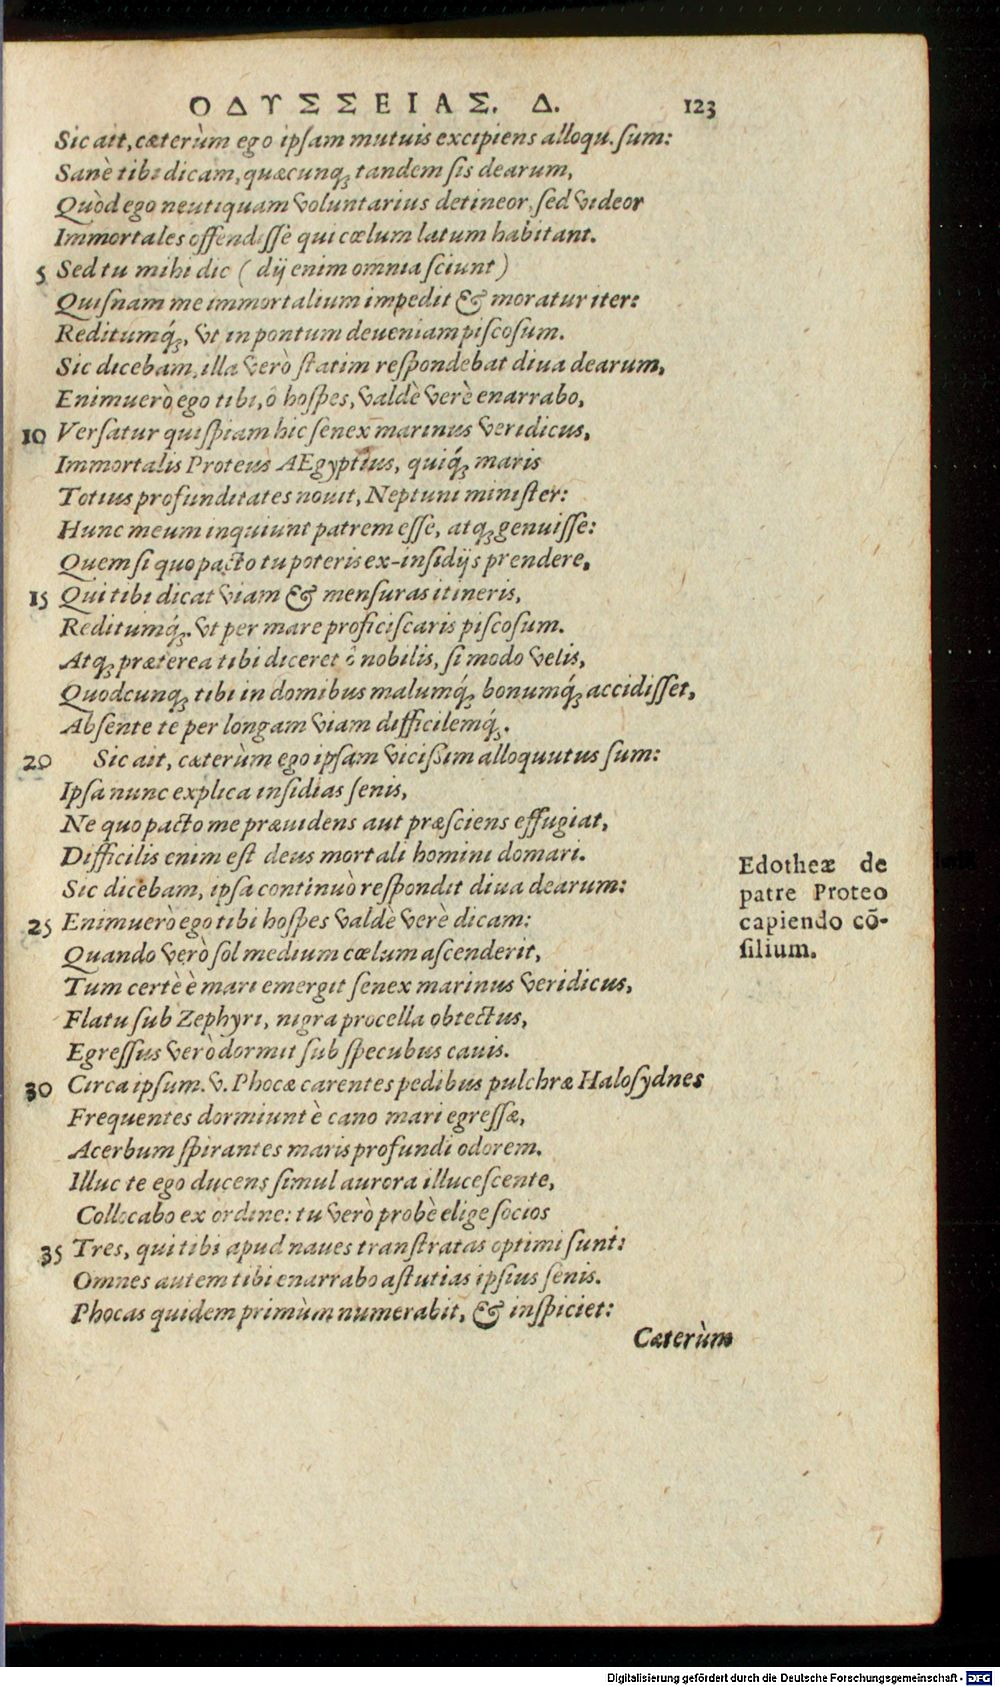 ΟΔΥΣΣΕΙΑΣ. Δ. 123
Sic ait, cæterùm ego ipſam mutuis excipiens alloqu. ſum:
Sanè tibi dicam, quæcunqꝫ tandem ſis dearum,
Quòd ego neutiquam voluntarius detineor, ſed videor
Immortales offendiſſe qui cœlum latum habitant.
5 Sed tu mihi dic ( dij enim omnia ſciunt )
Quiſnam me immortalium impedit & moratur iter:
Reditumq́ꝫ, vt in pontum deueniam piſcoſum.
Sic dicebam, illa verò ſtatim reſpondebat diua dearum,
Enimuerò ego tibi, ô hoſpes, valdè verè enarrabo,
10 Verſatur quiſpiam hic ſenex marinus veridicus,
Immortalis Proteus AEgyptius, quiq́ꝫ maris
Totius profunditates nouit, Neptuni miniſter:
Hunc meum inquiunt patrem eſſe, atqꝫ genuiſſe:
Quem ſi quo pacto tu poteris ex-inſidijs prendere,
15 Qui tibi dicat viam & menſuras itineris,
Reditumq́ꝫ. vt per mare proficiſcaris piſcoſum.
Atqꝫ præterea tibi diceret ô nobilis, ſi modo velis,
Quodcunqꝫ tibi in domibus malumq́ꝫ bonumq́ꝫ accidiſſet,
Abſente te per longam viam difficilemq́ꝫ.
20 Sic ait, cæterùm ego ipſam viciſſim alloquutus ſum:
Ipſa nunc explica inſidias ſenis,
Ne quo pacto me præuidens aut præſciens effugiat,
Difficilis enim eſt deus mortali homini domari.
Sic dicebam, ipſa continuò reſpondit diua dearum:
25 Enimuerò ego tibi hoſpes valdè verè dicam:
Quando verò ſol medium cœlum aſcenderit,
Tum certè è mari emergit ſenex marinus veridicus,
Flatu ſub Zephyri, nigra procella obtectus,
Egreſſus verò dormit ſub ſpecubus cauis.
30 Circa ipſum. v. Phocæ carentes pedibus pulchræ Haloſydnes
Frequentes dormiunt è cano mari egreſſæ,
Acerbum ſpirantes maris profundi odorem.
Illuc te ego ducens ſimul aurora illuceſcente,
Collocabo ex ordine: tu verò probè elige ſocios
35 Tres, qui tibi apud naues tranſtratas optimi ſunt:
Omnes autem tibi enarrabo aſtutias ipſius ſenis.
Phocas quidem primùm numerabit, & inſpiciet:
Cæterùm
Edotheæ de
patre Proteo
capiendo cō-
ſilium.
Digitalisierung gefördert durch die Deutsche Forschungsgemeinschaft - DFG